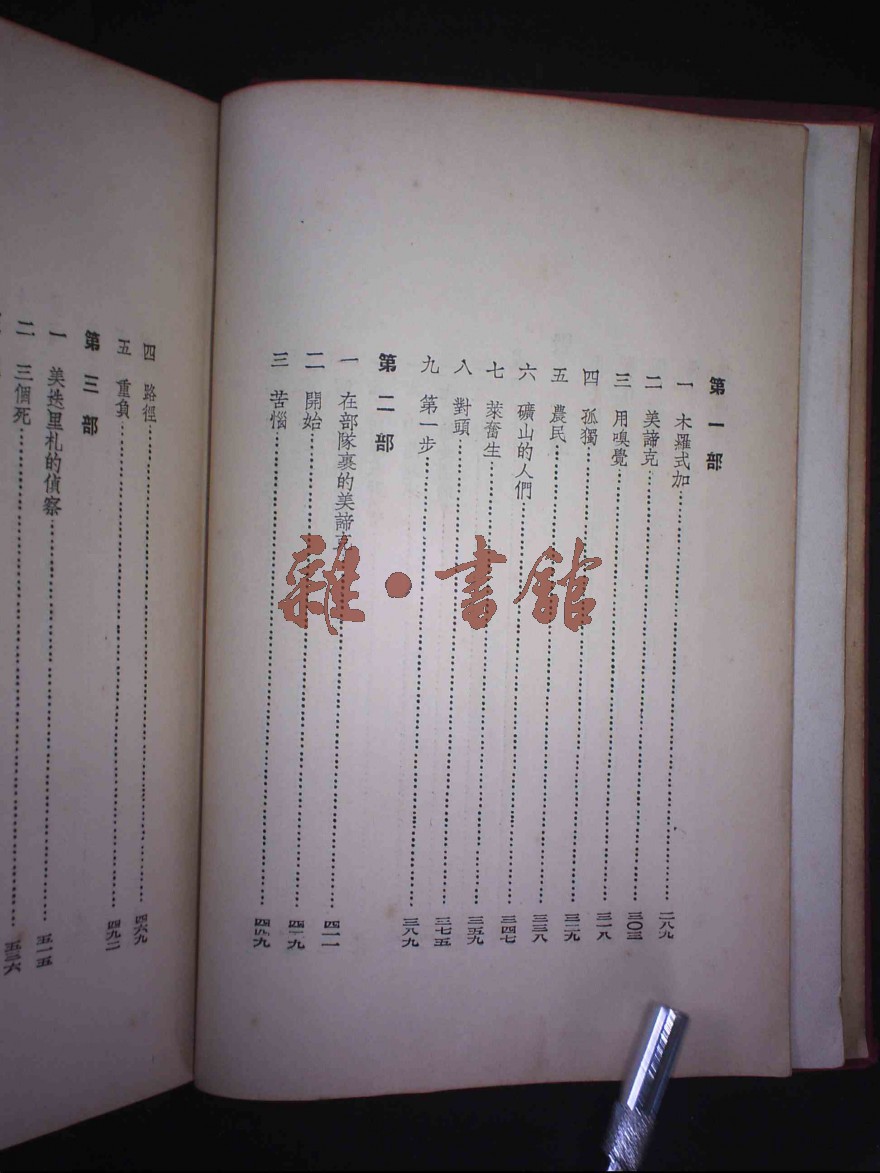 第一部
一 木羅式加……二八九
二 美諦克……三〇三
三 用嗅覺……三一八
四 孤獨……三二九
五 農民……三三八
六 礦山的人們……三四七
七 萊奮生……三五九
八 對頭……三七五
九 第一步……三八九
第二部
一 在部隊裏的美諦克……四一一
二 開始……四二九
三 苦惱……四四九
四 路徑……四六九
五 重負……四九二
第三部
一 美迭里札的偵察……五一五
二 三個死……五三六
雜·書館